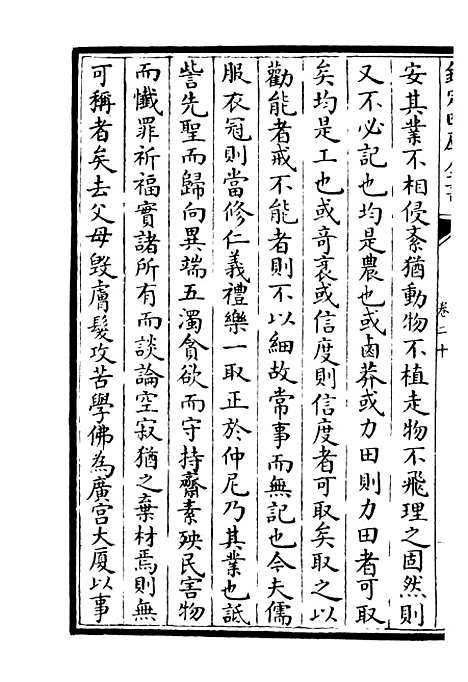 安其業不相侵紊猶動物不植走物不飛理之固然則
又不必記也均是農也或鹵莽或力田則力田者可取
矣均是工也或奇衺或信度則信度者可取矣取之以
勸能者戒不能者則不以細故常事而無記也今夫儒
服衣冠則當修仁義禮樂一取正於仲尼乃其業也詆
訾先聖而歸向異端五濁貪欲而守持齋素殃民害物
而懺罪祈福實諸所有而談論空寂猶之棄材焉則無
可稱者矣去父母毀膚髮攻苦學佛為廣宫大厦以事
卷二十